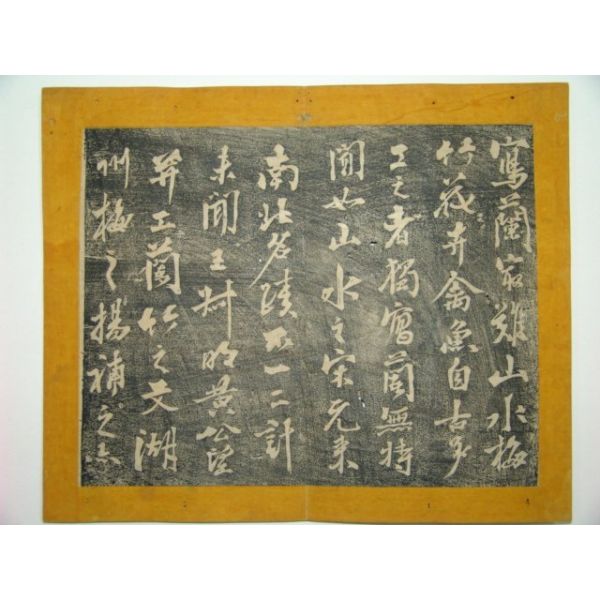 寫蘭㝡難山水梅
竹花卉禽魚自古多
工之者獨寫蘭無特
聞如山水之宋元來
南北名蹟不一二計
未聞王叔明黃公望
并工蘭竹之文湖
州梅之揚補之亦